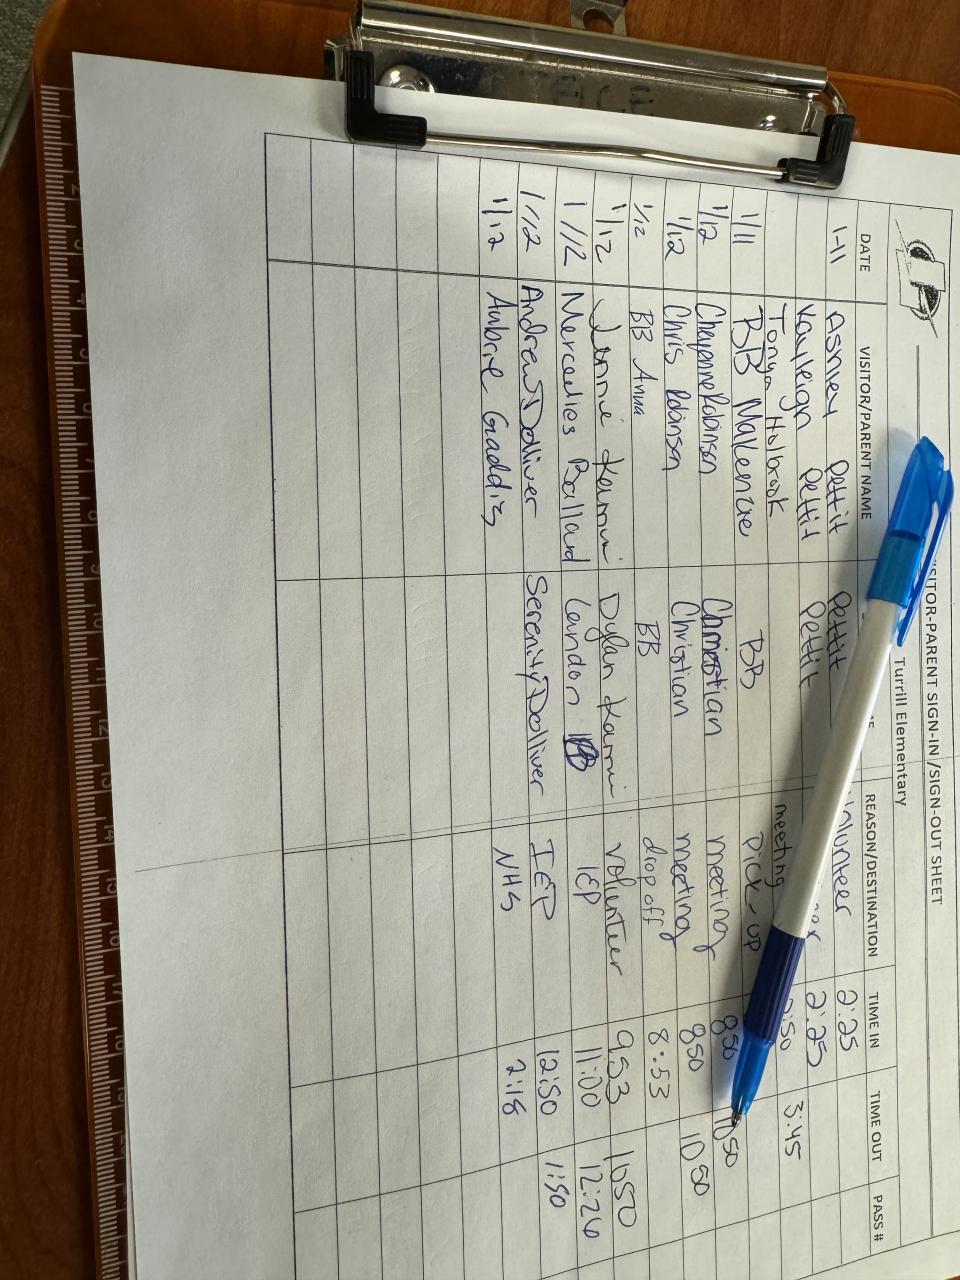 VISITOR-PARENT SIGN-IN /SIGN-OUT SHEET
Turrill Elementary
DATE VISITOR/PARENT NAME REASON/DESTINATION TIME IN TIME OUT PASS #
1-11 Ashley Pettit Pettit Volunteer 2:25
Kayleigh Pettit Pettit 2:25
Tonya Holbrook meeting 2:50 3:45
1/11 BB Makenzie BB Pick-up
1/12 Cheyenne Robinson Christian meeting 850 1050
1/12 Chris Robinson Christian meeting 850 1050
1/12 BB Anna BB drop off 8:53
1/12 Dylan volunteer 953 1050
1/12 Mercedies Ballard Landon B IEP 11:00 12:26
1/12 Andrew Dolliver Serenity Dolliver IEP 12:50 1:50
1/12 Aubrie Gaddis NHS 2:18